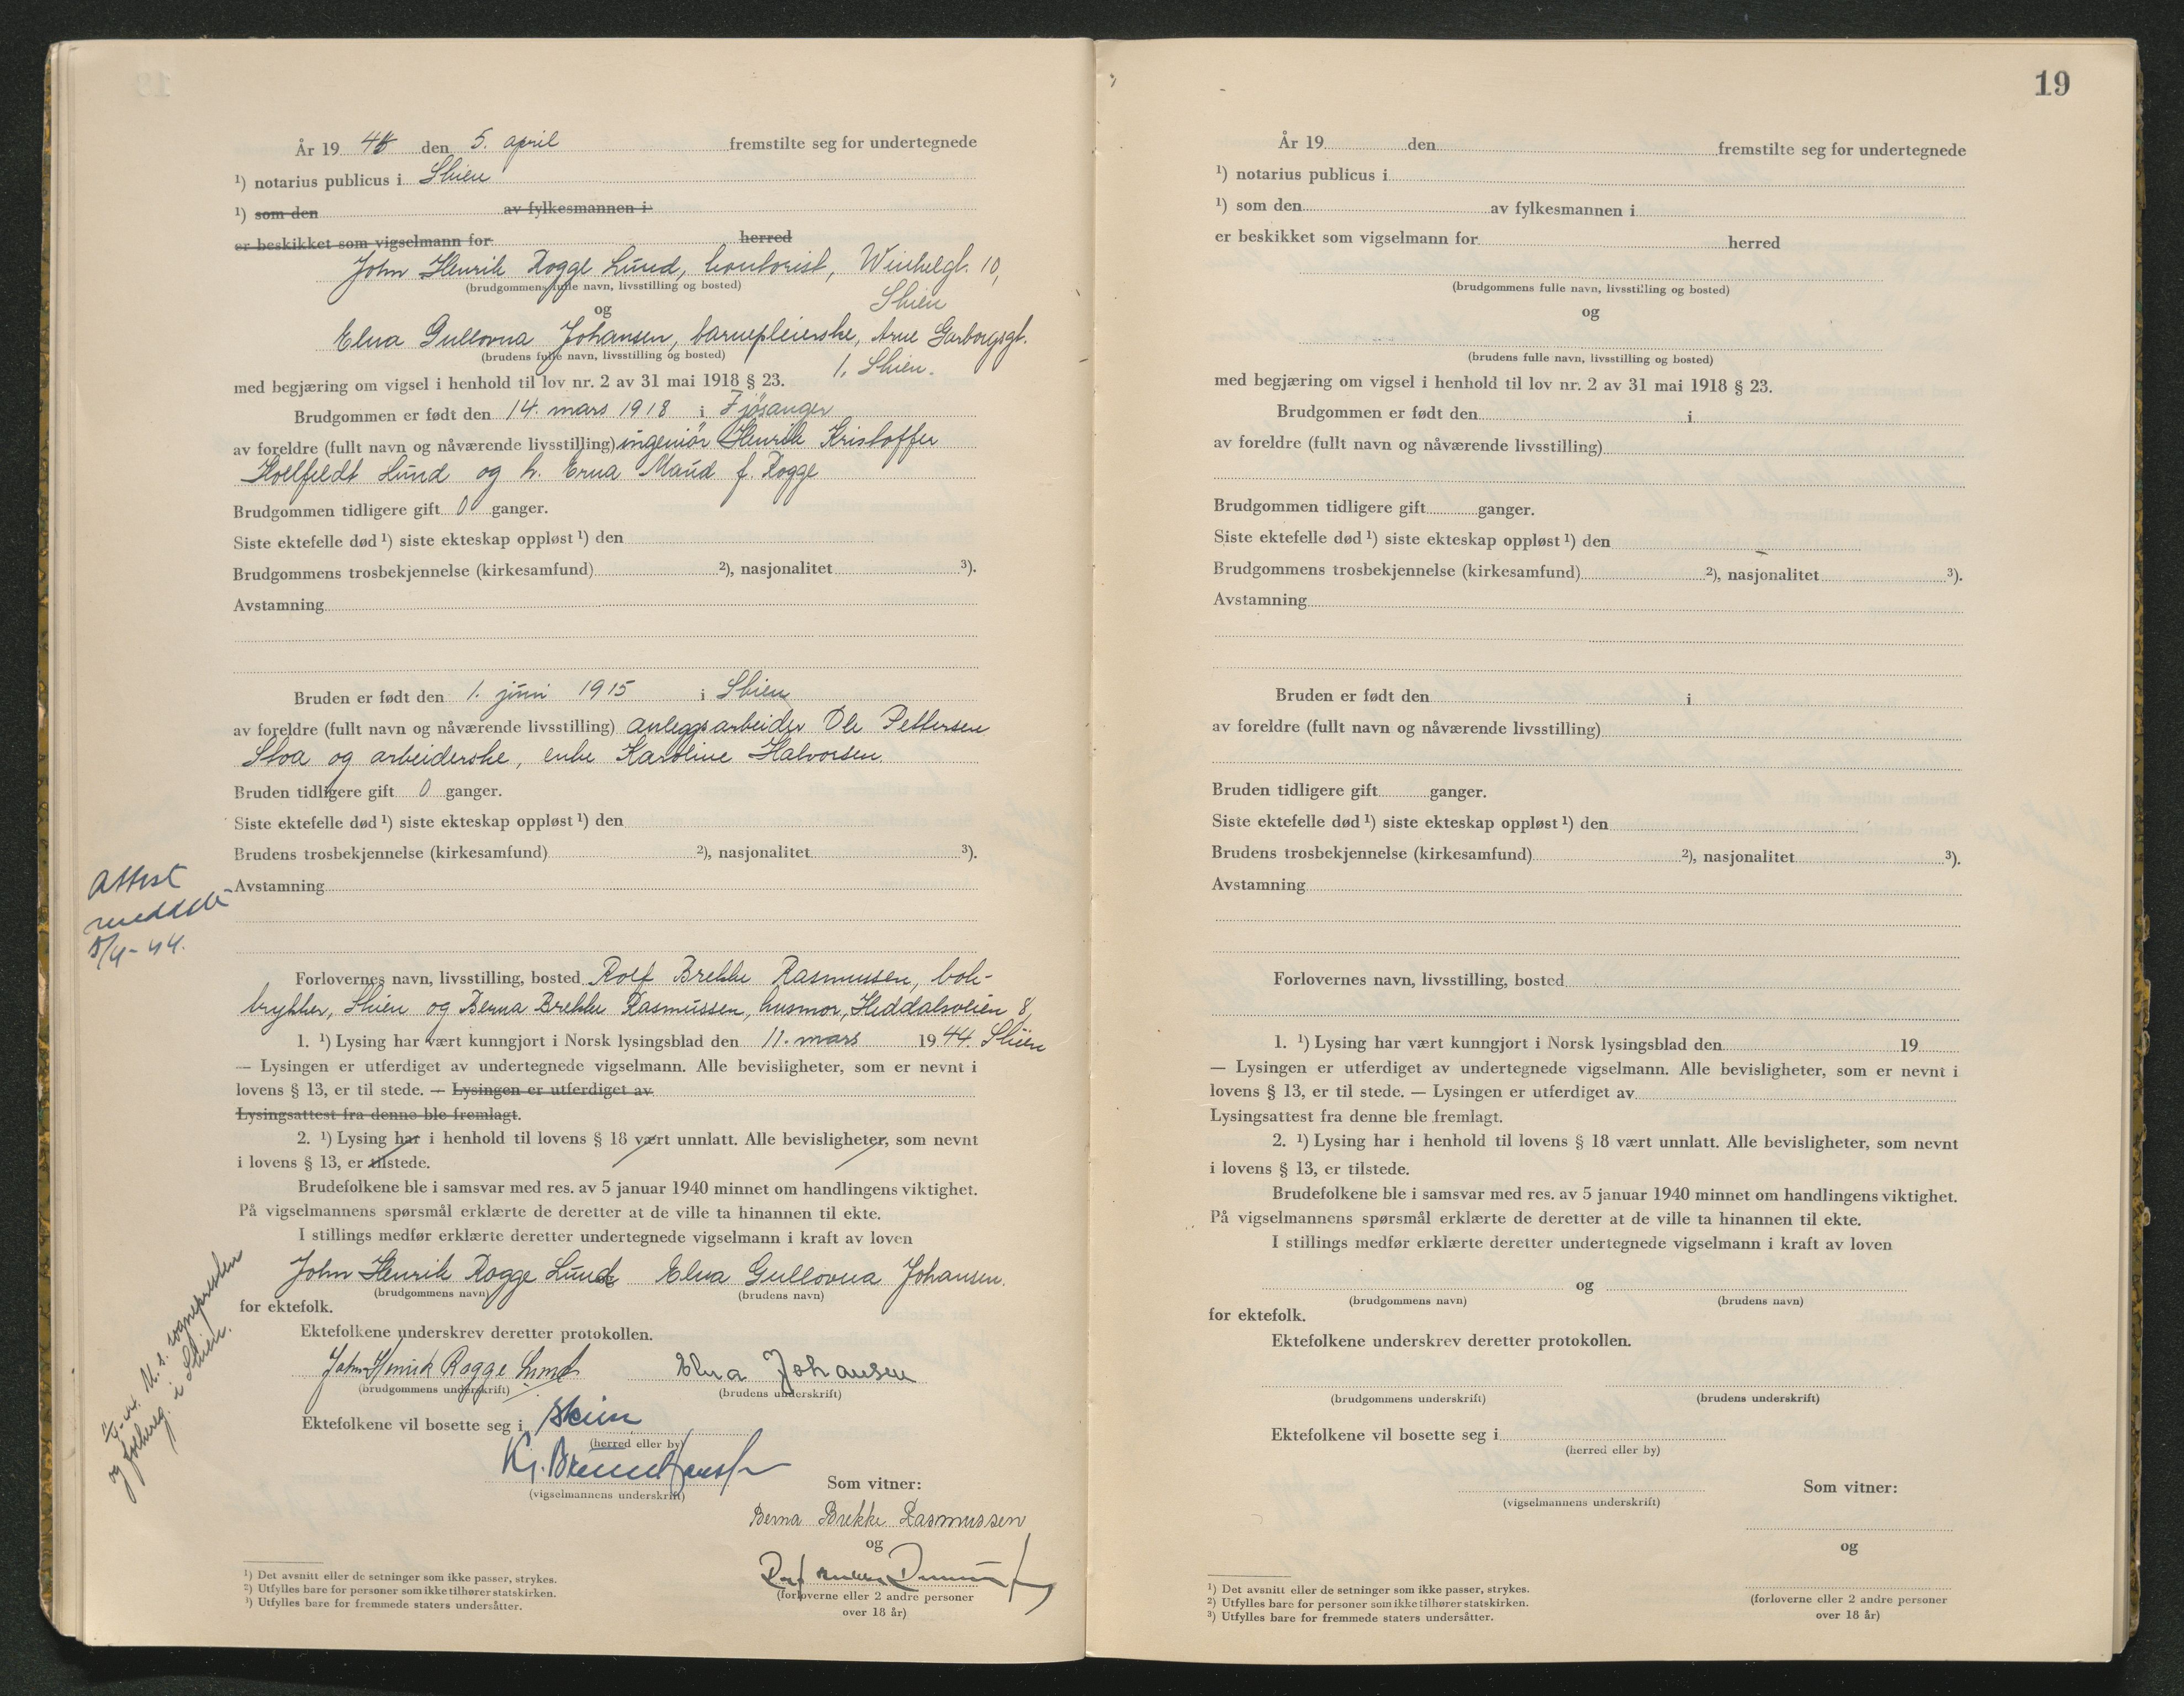 År 19 44 den 5. april fremstilte seg for undertegnede
¹) notarius publicus i Skien
¹) som den av fylkesmannen i
er beskikket som vigselmann for herred
John Henrik Rogge Lund, kontorist, Winkelgt. 10,
(brudgommens fulle navn, livsstilling og bosted)
Skien
og
Elna Gullovna Johansen, barnepleierske, Arne Garborgsgt.
(brudens fulle navn, livsstilling og bosted)
1, Skien.
med begjæring om vigsel i henhold til lov nr. 2 av 31 mai 1918 § 23.
Brudgommen er født den 14. mars 1918 i Fjösanger
av foreldre (fullt navn og nåværende livsstilling) ingeniör Henrik Kristoffer
Hollfeldt Lund og h. Erna Maud f. Rogge
Brudgommen tidligere gift 0 ganger.
Siste ektefelle død ¹) siste ekteskap oppløst ¹) den
Brudgommens trosbekjennelse (kirkesamfund) ²), nasjonalitet ³).
Avstamning
Bruden er født den 1. juni 1915 i Skien
av foreldre (fullt navn og nåværende livsstilling) anleggsarbeider Ole Pettersen
Stoa og arbeiderske, enke Karoline Halvorsen.
Bruden tidligere gift 0 ganger.
Siste ektefelle død ¹) siste ekteskap oppløst ¹) den
Brudens trosbekjennelse (kirkesamfund) ²), nasjonalitet ³).
Avstamning
Attest
meddelt
5/4-44.
Forlovernes navn, livsstilling, bosted Rolf Brekke Rasmussen, bok-
trykker, Skien og Berna Brekke Rasmussen, husmor, Heddalsveien 8,
1. ¹) Lysing har vært kunngjort i Norsk lysingsblad den 11. mars 1944. Skien
— Lysingen er utferdiget av undertegnede vigselmann. Alle bevisligheter, som er nevnt i
lovens § 13, er til stede. — Lysingen er utferdiget av
Lysingsattest fra denne ble fremlagt.
2. ¹) Lysing har i henhold til lovens § 18 vært unnlatt. Alle bevisligheter, som nevnt
i lovens § 13, er tilstede.
Brudefolkene ble i samsvar med res. av 5 januar 1940 minnet om handlingens viktighet.
På vigselmannens spørsmål erklærte de deretter at de ville ta hinannen til ekte.
I stillings medfør erklærte deretter undertegnede vigselmann i kraft av loven
John Henrik Rogge Lund Elna Gullovna Johansen.
(brudgommens navn) (brudens navn)
for ektefolk.
Ektefolkene underskrev deretter protokollen.
John Henrik Rogge Lund Elna Johansen
(brudgommens underskrift) (brudens underskrift)
Ektefolkene vil bosette seg i Skien
(herred eller by)
(vigselmannens underskrift)
Som vitner:
Berna Brekke Rasmussen
og
Rolf Brekke Rasmussen
(forloverne eller 2 andre personer
over 18 år)
M. s. sognepresten
og folkereg. i Skien.
¹) Det avsnitt eller de setninger som ikke passer, strykes.
²) Utfylles bare for personer som ikke tilhører statskirken.
³) Utfylles bare for fremmede staters undersåtter.
19
År 19 den fremstilte seg for undertegnede
¹) notarius publicus i
¹) som den av fylkesmannen i
er beskikket som vigselmann for herred
(brudgommens fulle navn, livsstilling og bosted)
og
(brudens fulle navn, livsstilling og bosted)
med begjæring om vigsel i henhold til lov nr. 2 av 31 mai 1918 § 23.
Brudgommen er født den i
av foreldre (fullt navn og nåværende livsstilling)
Brudgommen tidligere gift ganger.
Siste ektefelle død ¹) siste ekteskap oppløst ¹) den
Brudgommens trosbekjennelse (kirkesamfund) ²), nasjonalitet ³).
Avstamning
Bruden er født den i
av foreldre (fullt navn og nåværende livsstilling)
Bruden tidligere gift ganger.
Siste ektefelle død ¹) siste ekteskap oppløst ¹) den
Brudens trosbekjennelse (kirkesamfund) ²), nasjonalitet ³).
Avstamning
Forlovernes navn, livsstilling, bosted
1. ¹) Lysing har vært kunngjort i Norsk lysingsblad den 19
— Lysingen er utferdiget av undertegnede vigselmann. Alle bevisligheter, som er nevnt i
lovens § 13, er til stede. — Lysingen er utferdiget av
Lysingsattest fra denne ble fremlagt.
2. ¹) Lysing har i henhold til lovens § 18 vært unnlatt. Alle bevisligheter, som nevnt
i lovens § 13, er tilstede.
Brudefolkene ble i samsvar med res. av 5 januar 1940 minnet om handlingens viktighet.
På vigselmannens spørsmål erklærte de deretter at de ville ta hinannen til ekte.
I stillings medfør erklærte deretter undertegnede vigselmann i kraft av loven
og
(brudgommens navn) (brudens navn)
for ektefolk.
Ektefolkene underskrev deretter protokollen.
(brudgommens underskrift) (brudens underskrift)
Ektefolkene vil bosette seg i
(herred eller by)
Som vitner:
(vigselmannens underskrift)
og
(forloverne eller 2 andre personer
over 18 år)
¹) Det avsnitt eller de setninger som ikke passer, strykes.
²) Utfylles bare for personer som ikke tilhører statskirken.
³) Utfylles bare for fremmede staters undersåtter.